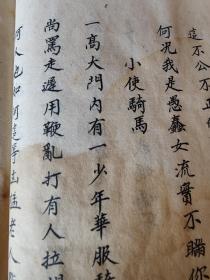 這不公不正
何況我是愚蠢女流實不瞞你
小使騎馬
一高大門內有一少年華服騎
尚罵走邊用鞭亂打有人拉
何人也如何這等